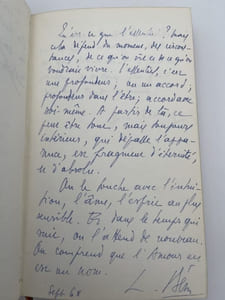 Qu'est-ce que l'essentiel ? Mais
cela dépend du moment, des circons-
tances, de ce qu'on vit et de ce qu'on
voudrait vivre. L'essentiel, c'est
une profondeur ; ou un accord,
profondeur dans l'être ; accord avec
soi-même. À partir de là, ce
peut être tout, mais toujours
intérieur, qui dépasse l'appa-
rence, est fragment d'éternité,
et d'absolu.
On le touche avec l'intui-
tion, l'âme, l'esprit au plus
sensible. Et, dans le temps qui
suit, on l'attend de nouveau.
On comprend que l'Amour en
est un nom.
L.
Sept. 68